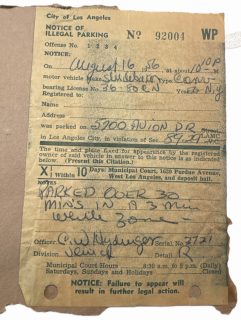 City of Los Angeles
NOTICE OF
ILLEGAL PARKING
Nº 92004 WP
Offense No. 1 2 3 4
On August 16 56 at about 10 10 P M
motor vehicle Studebaker Conv
bearing License No. 30-50CN N.Y.
Name
Address
was parked on 5200 AVION DR Street
in Los Angeles City, in violation of Sec. LAMC
The time and place fixed for appearance by the registered
owner of said vehicle in answer to this notice is as indicated:
(Present this Citation.)
X Within 10 Days: Municipal Court, 1628 Purdue Avenue,
West Los Angeles, and deposit bail.
NOTES:
PARKED OVER 30
MIN'S IN A 3 Min
White Zone
Officer C.W. Serial No. 2721
Division Venice Detail
Municipal Court Hours 8:30 a.m. to 5 p.m. (Daily)
Saturdays, Sundays and Holidays Closed
NOTICE: Failure to appear will
result in further legal action.